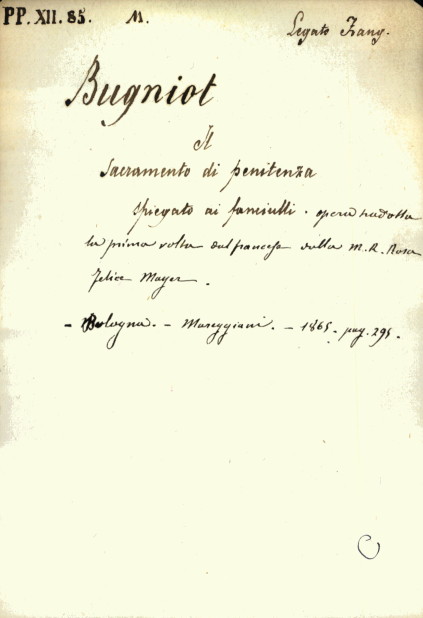 PP. XII. 85. M. Legato Frang.
Bugniot
Il
Sacramento di penitenza
spiegato ai fanciulli. opera tradotta
la prima volta dal francese dalla M. R. Rosa
Felice Mayer.
- Bologna. - Mareggiani. - 1865. pag. 295.
C